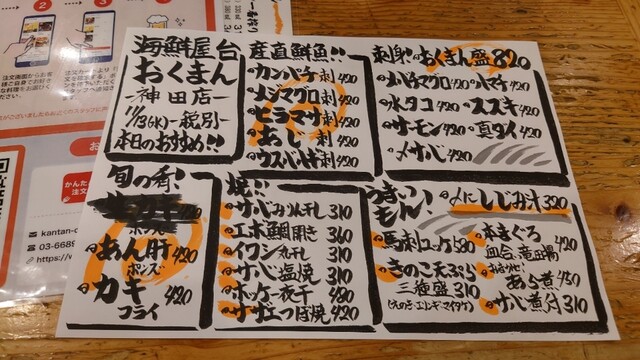 海鮮屋台
おくまん
-神田店-
11/13(水)-税別-
本日のおすすめ!!
産直鮮魚!!
カンパチ刺420
メジマグロ刺420
ヒラマサ刺420
あじ刺420
ウスバハギ刺420
刺身!おくまん盛820
メバチマグロ420
ハマチ420
水タコ420
スズキ420
サーモン420
真タイ420
〆サバ420
旬の肴!
ポン酢
あん肝420
ポンズ
カキ420
フライ
焼!!
サバみりん干し310
エボ鯛開き360
イワシ丸干し310
サバ塩焼310
ホッケ一夜干480
サザエつぼ焼420
うまいもん!
〆にしじみ汁320
馬刺ユッケ580
きのこ天ぷら
三種盛310
(えのき・エリンギ・マイタケ)
本まぐろ
血合竜田揚420
あら煮480
サバ煮付310
2
3
kantan-
03-669
https://
かんたん
注文